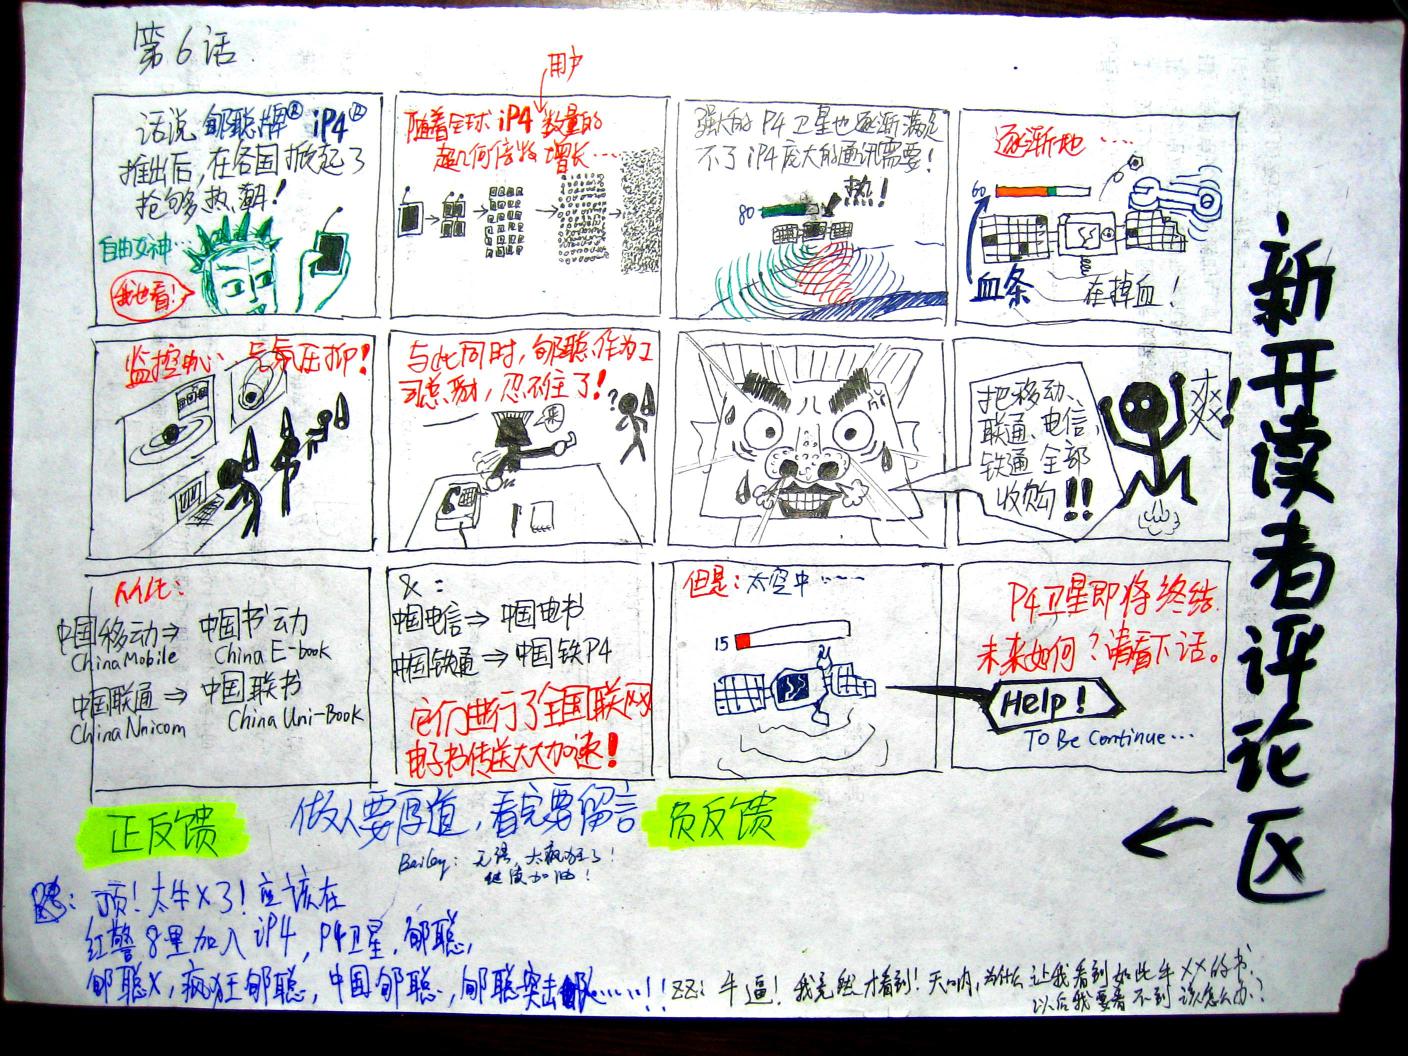 第6话
话说郇聪牌® iP4®
推出后,在各国掀起了
抢够热潮!
自由女神…
我也看!
用户
随着全球 iP4 数量的
超几何倍数增长……
强大的P4卫星也逐渐满足
不了iP4庞大的通讯需要!
80
热!
逐渐地……
60
血条
在掉血!
监控中心 气氛压抑!
与此同时,郇聪作为
忍不住了!
?
把移动、
联通、电信,
铁通全部
收购!!
爽!
从此:
中国移动⇒ 中国书动
China Mobile China E-book
中国联通⇒ 中国联书
China Nnicom China Uni-Book
&:
中国电信⇒ 中国电书
中国铁通⇒ 中国铁P4
它们进行了全国联网
电子书传送大大加速!
但是:太空中……
15
P4卫星即将终结
未来如何?请看下话。
Help!
To Be Continue...
新开读者评论区
正反馈
做人要厚道,看完要留言
负反馈
Bailey: 无语,太疯狂了!
继续加油!
顶!太牛X了!应该在
红警8里加入iP4,P4卫星,郇聪,
郇聪X,疯狂郇聪,中国郇聪,郇聪突击……!!
ZZ: 牛逼!我竟然才看到!天呐,为什么让我看到如此牛XX的书?
以后我要看不到该怎么办?